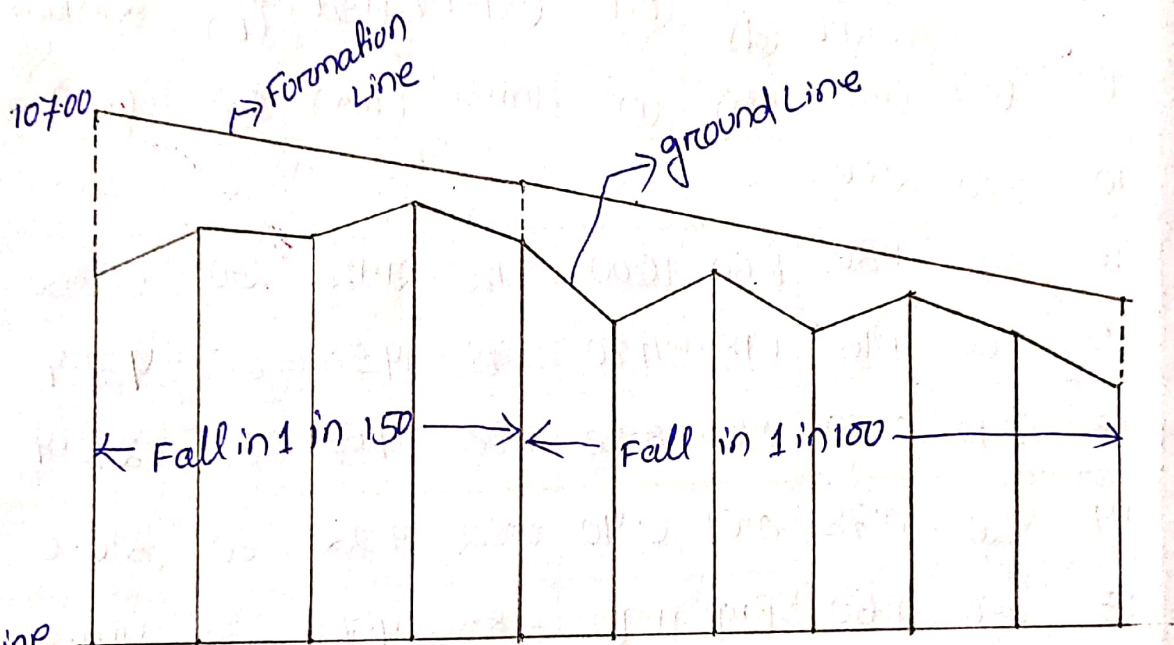 107.00
Formation
Line
ground Line
Fall in 1 in 150
Fall in 1 in 100